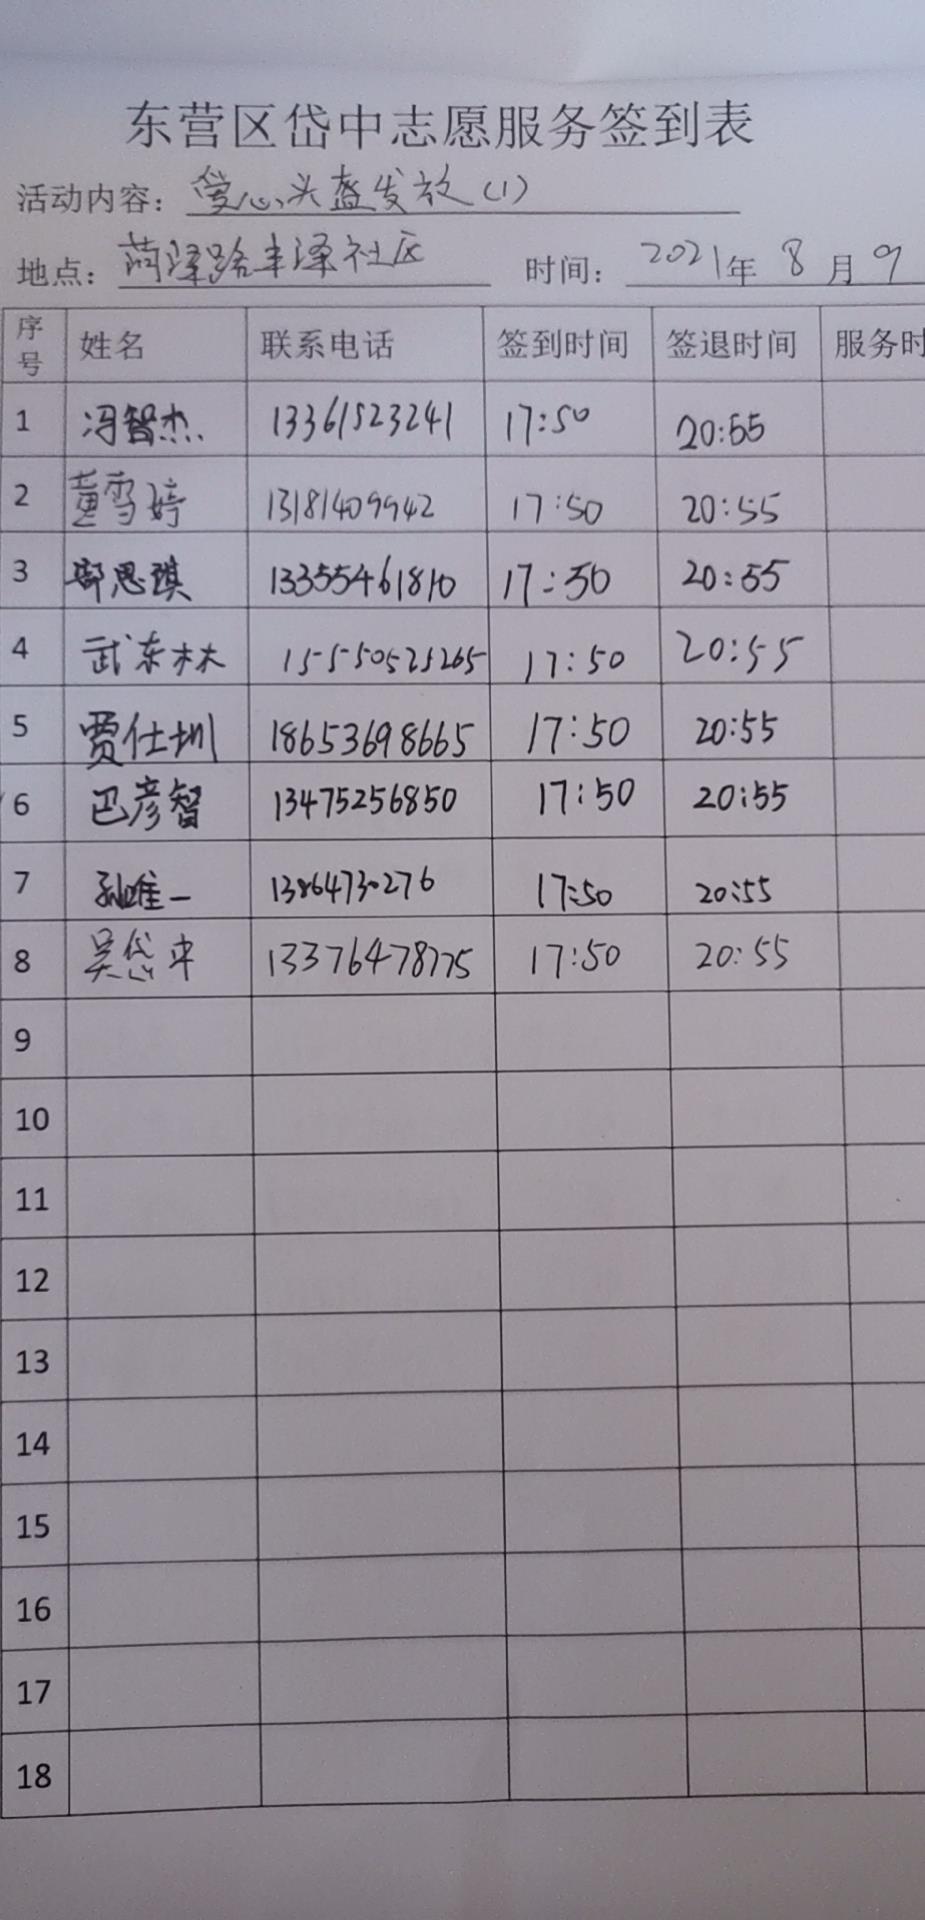 东营区岱中志愿服务签到表
活动内容：爱心头盔发放（1）
地点：菏泽路丰泽社区 时间：2021年 8 月 9
序号 姓名 联系电话 签到时间 签退时间 服务时
1 冯智杰 13361523241 17:50 20:55
2 董雪婷 13181409942 17:50 20:55
3 鄢思琪 13355461810 17:50 20:55
4 武东林 15550525265 17:50 20:55
5 贾仕圳 18653698665 17:50 20:55
6 巴彦智 13475256850 17:50 20:55
7 孙唯一 13864730276 17:50 20:55
8 吴岱中 13376478775 17:50 20:55
9
10
11
12
13
14
15
16
17
18